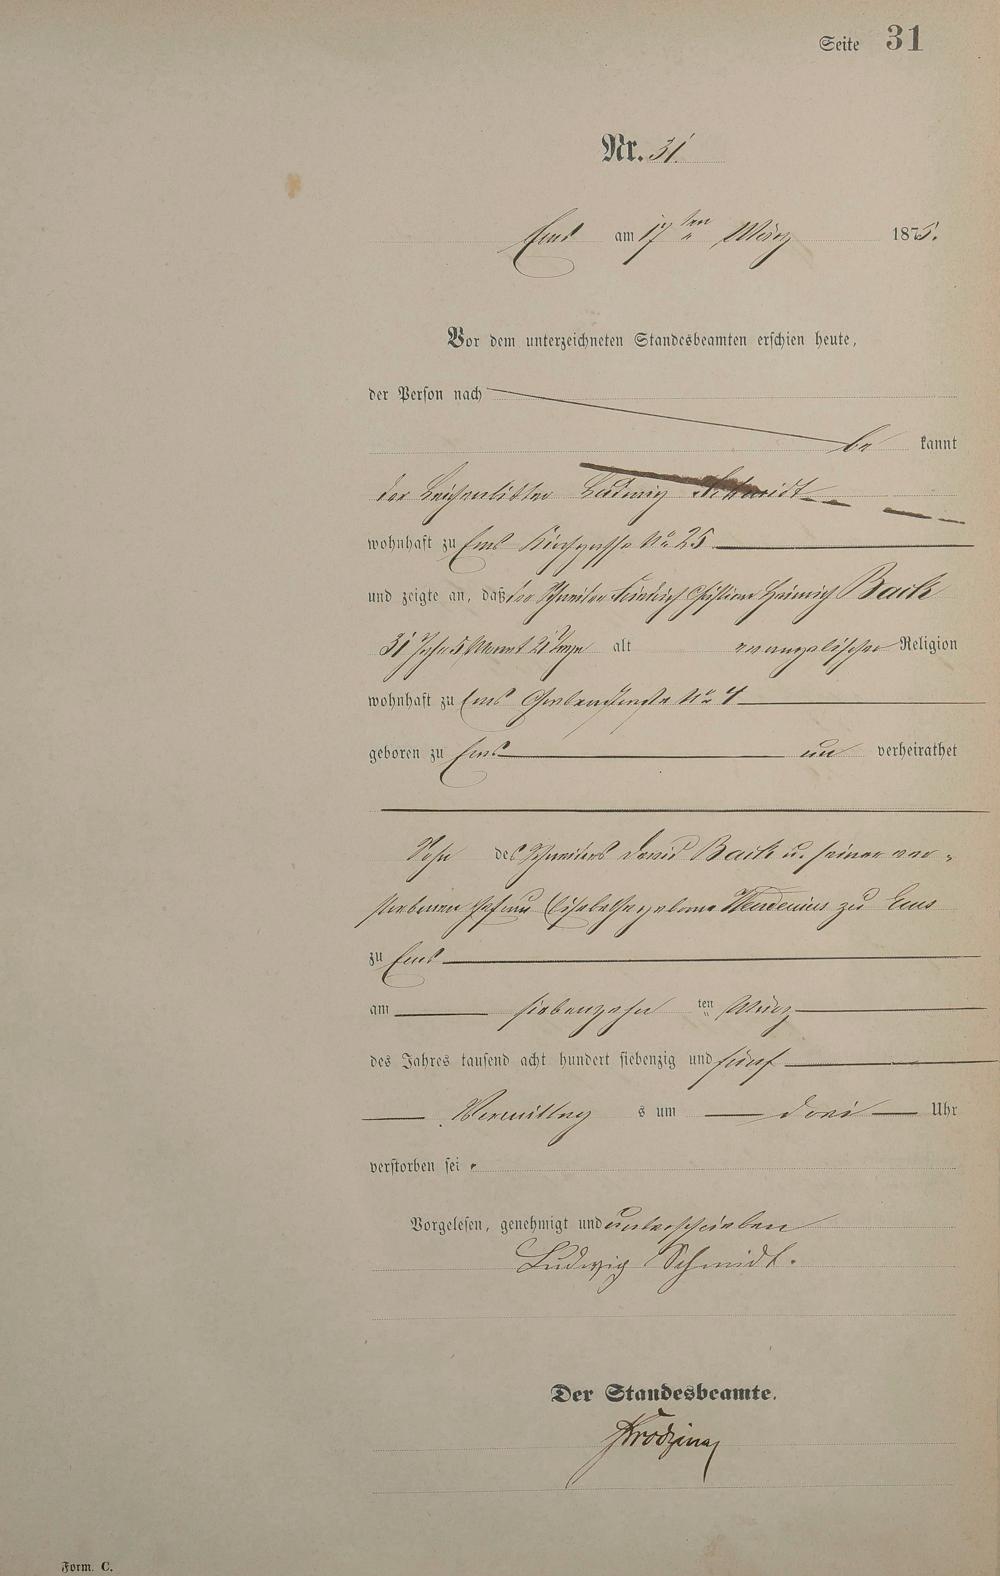 Seite 31
Nr. 31.
Ems am 17 ten März 1875.
Vor dem unterzeichneten Standesbeamten erschien heute,
der Person nach
be kannt
der Leichenbitter Ludwig Schmidt
wohnhaft zu Ems Kirchgasse No 25
und zeigte an, daß der Schreiner Friedrich Christian Heinrich Back
31 Jahr 5 Monat 21 Tage alt evangelischer Religion
wohnhaft zu Ems Grabenstraße No 4
geboren zu Ems un verheirathet
Sohn des Schreiners David Back u. seiner ver-
storbenen Ehefrau Elisabethe geborne zu Ems
zu Ems
am siebenzehn ten März
des Jahres tausend acht hundert siebenzig und fünf
Vormittag s um drei Uhr
verstorben sei.
Vorgelesen, genehmigt und unterschrieben
Ludwig Schmidt.
Der Standesbeamte.
Form. C.